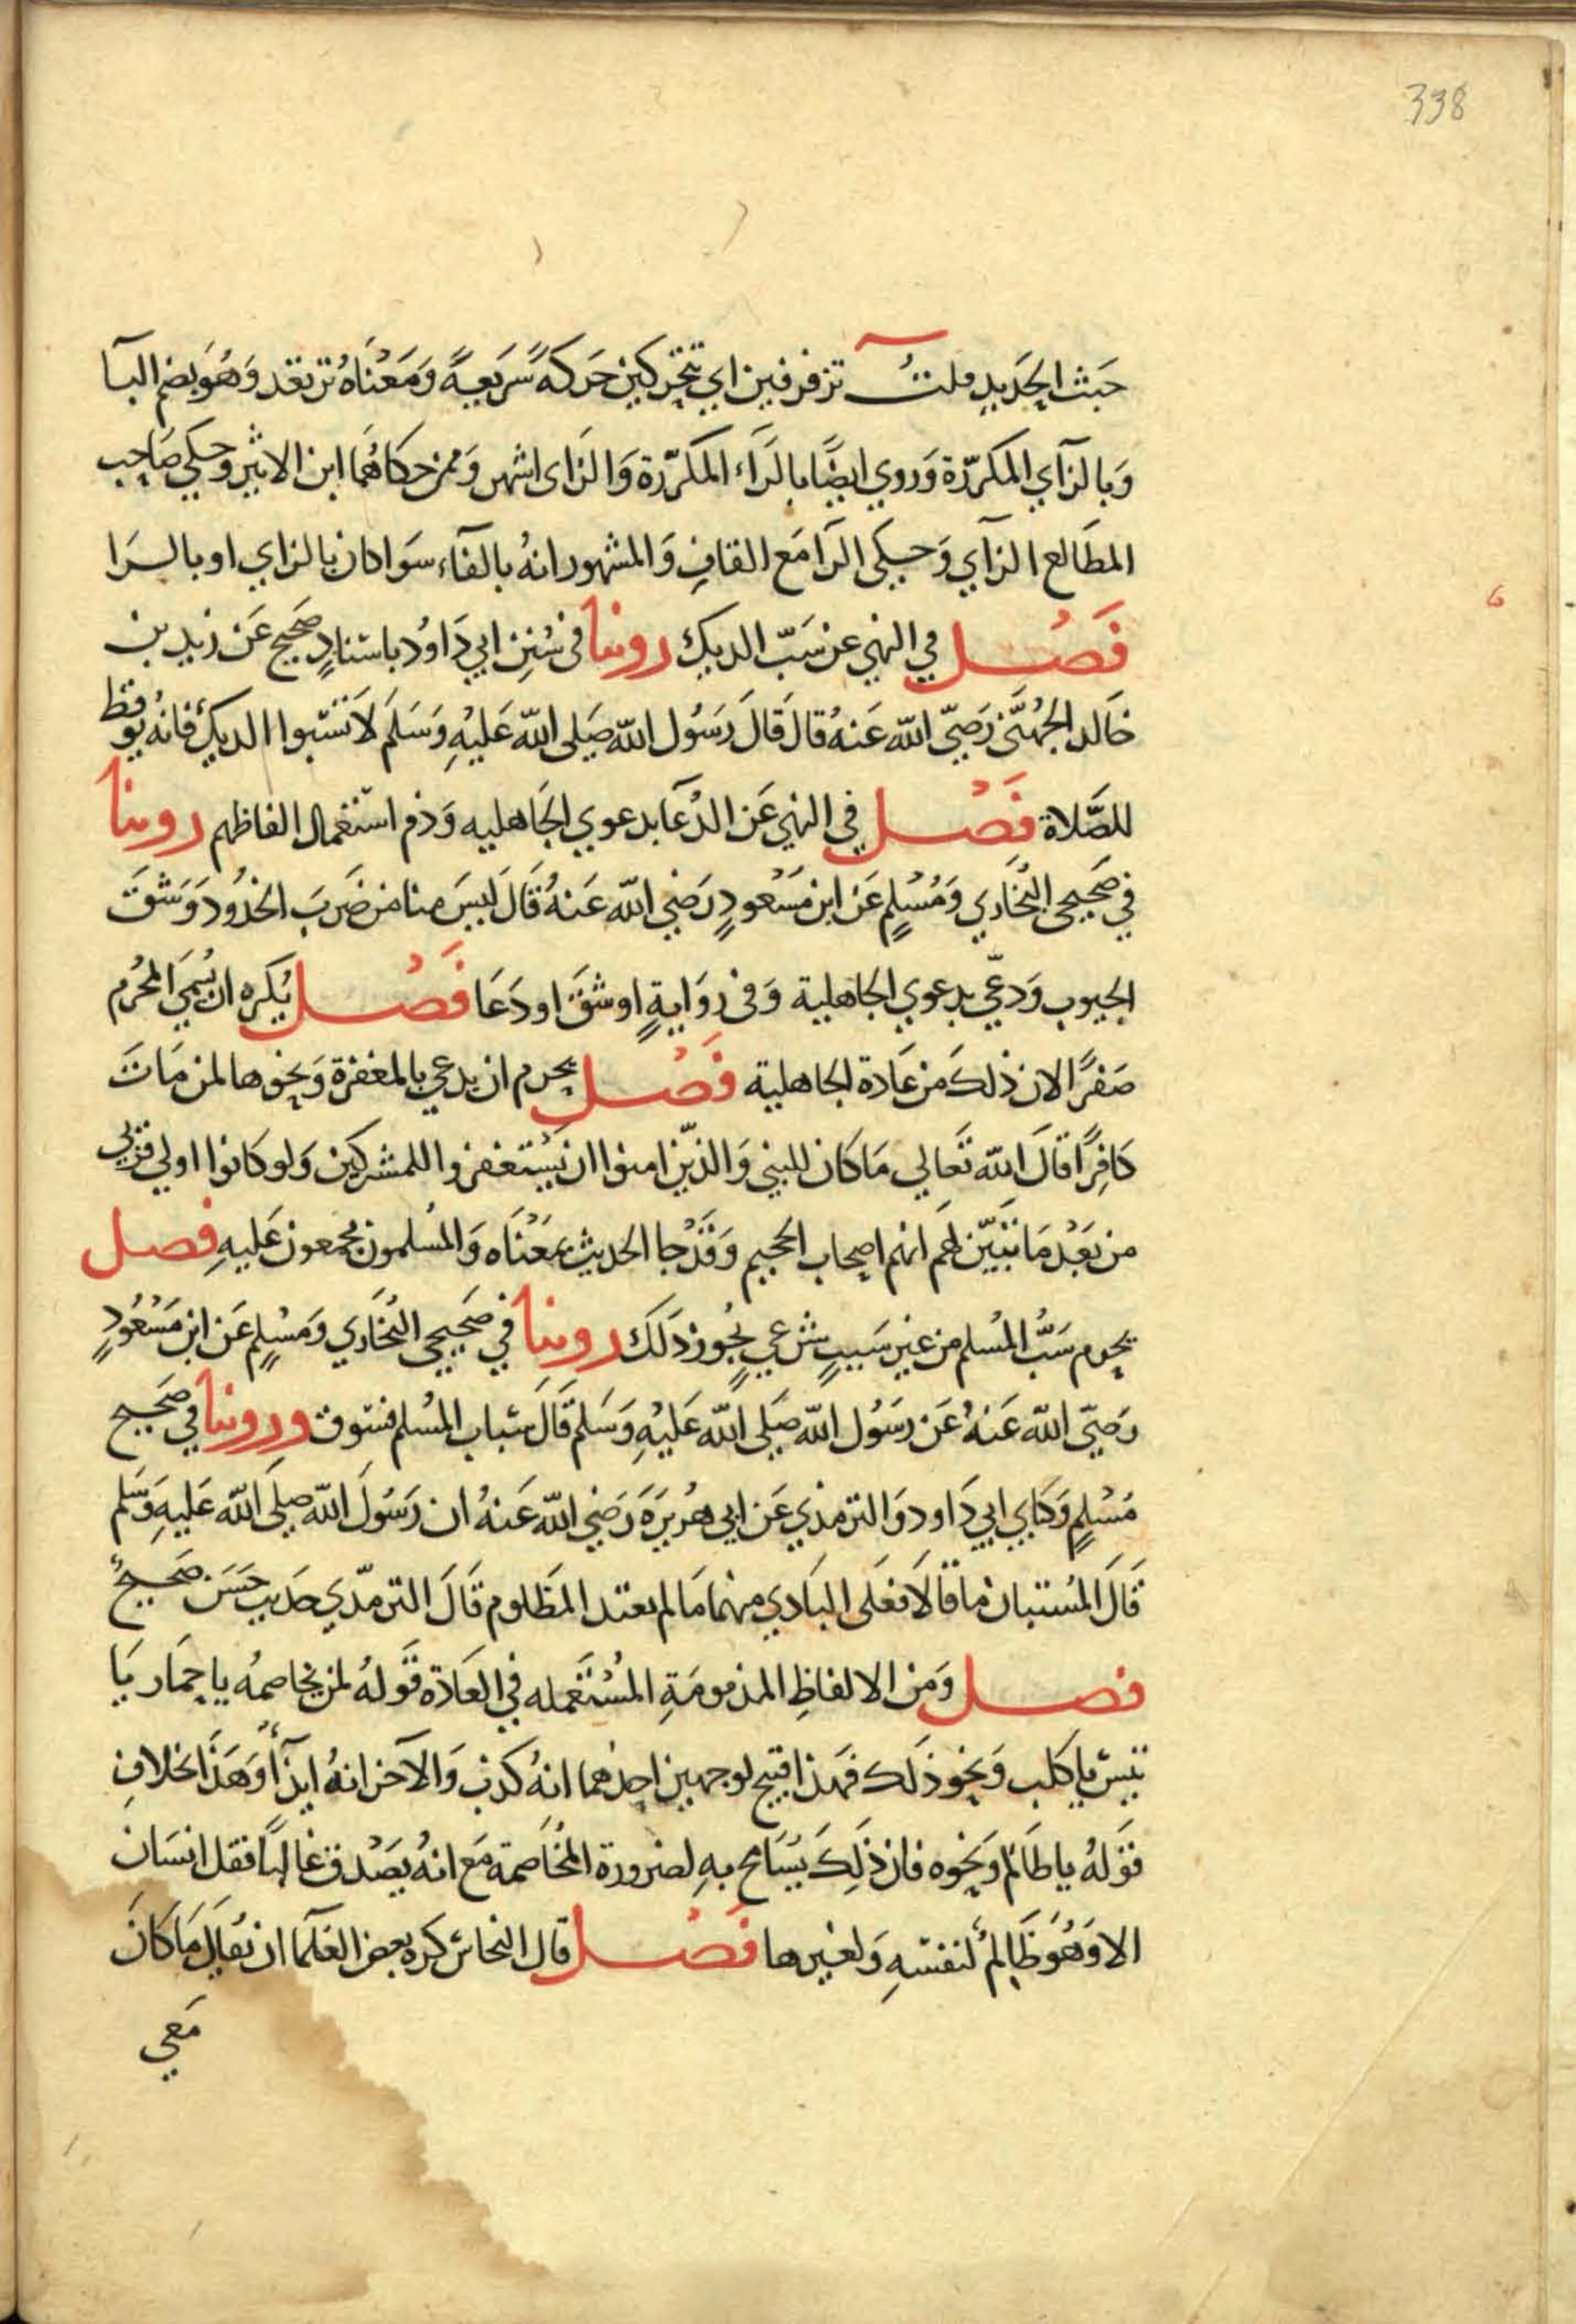 338
خبث الحديد قلت تزفزفين اي تتحركين حَركة سَريعة وَمَعناهُ ترتعد وَهُوَ بضم التا
وَبالزآي المكرّرة وَروي ايضًا بالرَاء المكرّرة وَالزاى اشهر وَممن حكاهُمَا ابن الاثير وحكي صَاحب
المطَالع الزآي وَحكى الرَا مَع القافِ وَالمشهور انهُ بالفآء سَوا كان بالزاي او بالرَا
فَصْل في النهي عن سَبّ الديك روينا فى سُنن ابي دَاوُد باسنادٍ صَحيح عَن زيد بن
خالد الجُهَنى رَضيّ الله عَنهُ قالَ قالَ رَسُول الله صَلى الله عَليْهِ وَسَلم لَا تَسُبوا الديك فانهُ يوقظ
للصَّلاة فَصْل في النهي عَن الدُعَا بدعوي الجَاهليه وَذم استعمال الفاظهم روينا
في صَحيحي البُخاري وَمُسْلمٍ عَن ابن مَسْعودٍ رَضي الله عَنهُ قَالَ ليسَ منا من ضَربَ الخدُود وَشقَ
الجيوب وَدعي بدعوي الجاهلية وَفى روَايةٍ او شقَ او دَعَا فَصْل يُكره ان يُسمَي المحُرم
صَفرًا لان ذلك من عَادة الجاهلية فَصْل يحرم ان يدعي بالمغفرة وَنحوها لمن مَات
كافِرًا قالَ الله تَعالي مَا كان للنبي وَالذيّن امنوا ان يَسْتغفروا للمشركين وَلو كانوا اولي قربى
من بَعْد مَا تبَيّن لهُم انهم اصحاب الجحيم وَقدْ جا الحديث بمَعْنَاه وَالمُسلمون مجُمعون عَليهِ فصل
يحرم سَبُّ المُسلم من غير سَببٍ شرعيٍ يجُوز ذَلكَ روينا في صَحيحي البُخَاري وَمسْلمٍ عَن ابن مَسْعُودٍ
رَضيّ الله عَنهُ عَن رسَوُل الله صَلى الله عَليْهِ وَسَلم قَالَ سَباب المُسلم فسوق وروينا في صَحيح
مسْلمٍ وَكتابي ابي دَاود وَالترمذي عَن ابي هُريرَة رَضي الله عَنهُ ان رَسَوُلَ الله صلى الله عَليهِ وَسَلم
قَالَ المُستبان ما قالَا فعَلى البَادي منهمَا مَا لم يعتد المظَلوم قَالَ الترمذي حَديث حسَن صَحيحٌ
فصل وَمَن الالفاظِ المذمومَةِ المُسْتَعمله في العَادَة قَولهُ لمن يخاصمهُ يا حِمَار يَا
تيس يا كلب وَنحو ذلك فَهذا قبيح لوجهين احدُهما انهُ كذب وَالآخر انهُ ايذآء وَهَذَا بخلافِ
قوَلهُ يا ظَالم وَنحوه فان ذَلِكَ يُسَامح بهِ لضرورة المخُاصمة مَع انهُ يصَدْق غالبًا فقل انسَان
الا وَهُوَ ظَالمٌ لنفسهِ وَلغيرها فَصْل قال النحاس كره بعض العُلمَآ ان يقالَ مَا كانَ
مَعي